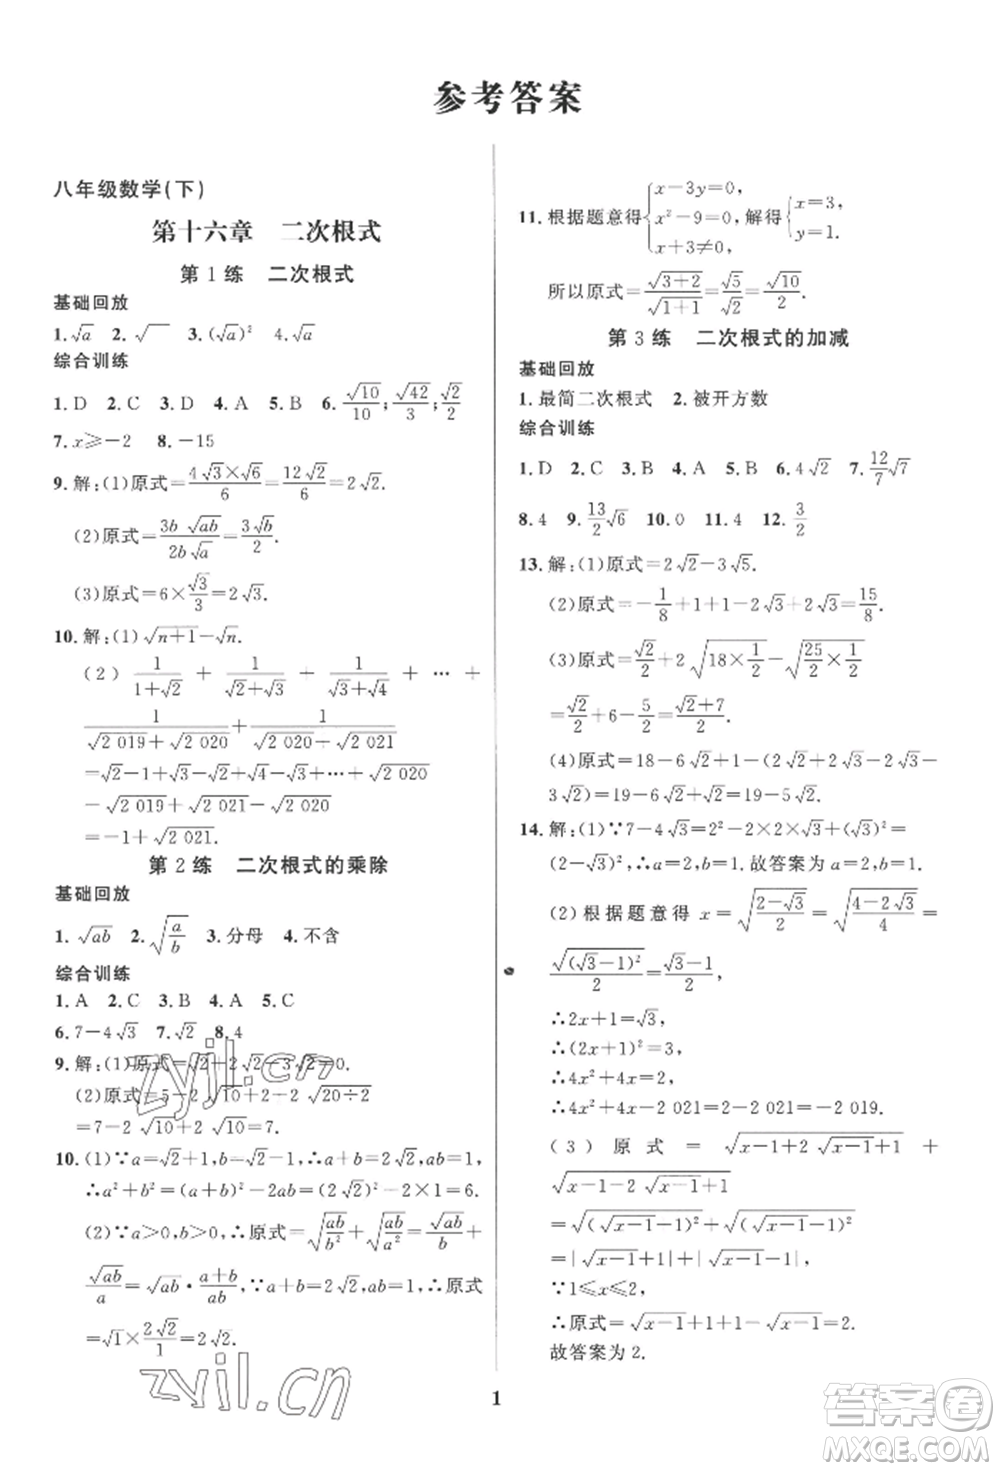 参考答案
八年级数学(下)
第十六章 二次根式
第 1 练 二次根式
基础回放
1.√a 2.√ 3.(√a)² 4.√a
综合训练
1.D 2.C 3.D 4.A 5.B 6.√10/10;√42/3;√2/2
7.x≥-2 8.-15
9.解:(1)原式=4√3×√6/6=12√2/6=2√2.
(2)原式=3b√ab/2b√a=3√b/2.
(3)原式=6×√3/3=2√3.
10.解:(1)√n+1-√n.
(2) 1/(1+√2) + 1/(√2+√3) + 1/(√3+√4) + … +
1/(√2 019+√2 020)+1/(√2 020+√2 021)
=√2-1+√3-√2+…+√2 020-
√2 019+√2 021-√2 020
=-1+√2 021.
第 2 练 二次根式的乘除
基础回放
1.√ab 2.√(a/b) 3.分母 4.不含
综合训练
1.A 2.C 3.B 4.A 5.C
6.7-4√3 7.√2 8.4
9.解:(1)原式=√2+2√2=0.
(2)原式=5-2√10+2-√20÷2
=7-2√10+2√10=7.
10.(1)∵a=√2+1,b=√2-1,∴a+b=2√2,ab=1,
∴a²+b²=(a+b)²-2ab=(2√2)²-2×1=6.
(2)∵a>0,b>0,∴原式=√(ab/b²)+√(ab/a²)=√ab/b+
√ab/a=√ab·(a+b)/ab,∵a+b=2√2,ab=1,∴原式
=√1×2√2/1=2√2.
11.根据题意得{x-3y=0, x²-9=0, x+3≠0,解得{x=3, y=1.
所以原式=√(3+2)/√(1+1)=√5/√2=√10/2.
第 3 练 二次根式的加减
基础回放
1.最简二次根式 2.被开方数
综合训练
1.D 2.C 3.A 4.D 5.B 6.4√2 7.12/7√7
8.4 9.13/2√6 10.0 11.4 12.3/2
13.解:(1)原式=2√2-3√5.
(2)原式=-1/8+1+1-2√3+2√3=15/8.
(3)原式=√2/2+2√(18×1/2)-√(25/2×1/2)
=√2/2+6-5/2=(√2+7)/2.
(4)原式=18-6√2+1-(6√2-
3√2)=19-6√2-3√2=19-9√2.
14.解:(1)∵7-4√3=2²-2×2×√3+(√3)²=
(2-√3)²,∴a=2,b=1.故答案为a=2,b=1.
(2)根据题意得 x=√((2-√3)/2)=√((4-2√3)/4)=
√(√3-1)²/2=(√3-1)/2,
∴2x+1=√3,
∴(2x+1)²=3,
∴4x²+4x=2,
∴4x²+4x-2 021=2-2 021=-2 019.
(3)原式=√(x-1+2√(x-1)+1)+
√(x-1-2√(x-1)+1)
=√(√(x-1)+1)²+√(√(x-1)-1)²
=|√(x-1)+1|+|√(x-1)-1|
∵1≤x≤2,
∴原式=√(x-1)+1+1-√(x-1)=2.
故答案为2.
1
zyjl.cn
zyjl.cn
答案圈
MXQE.COM